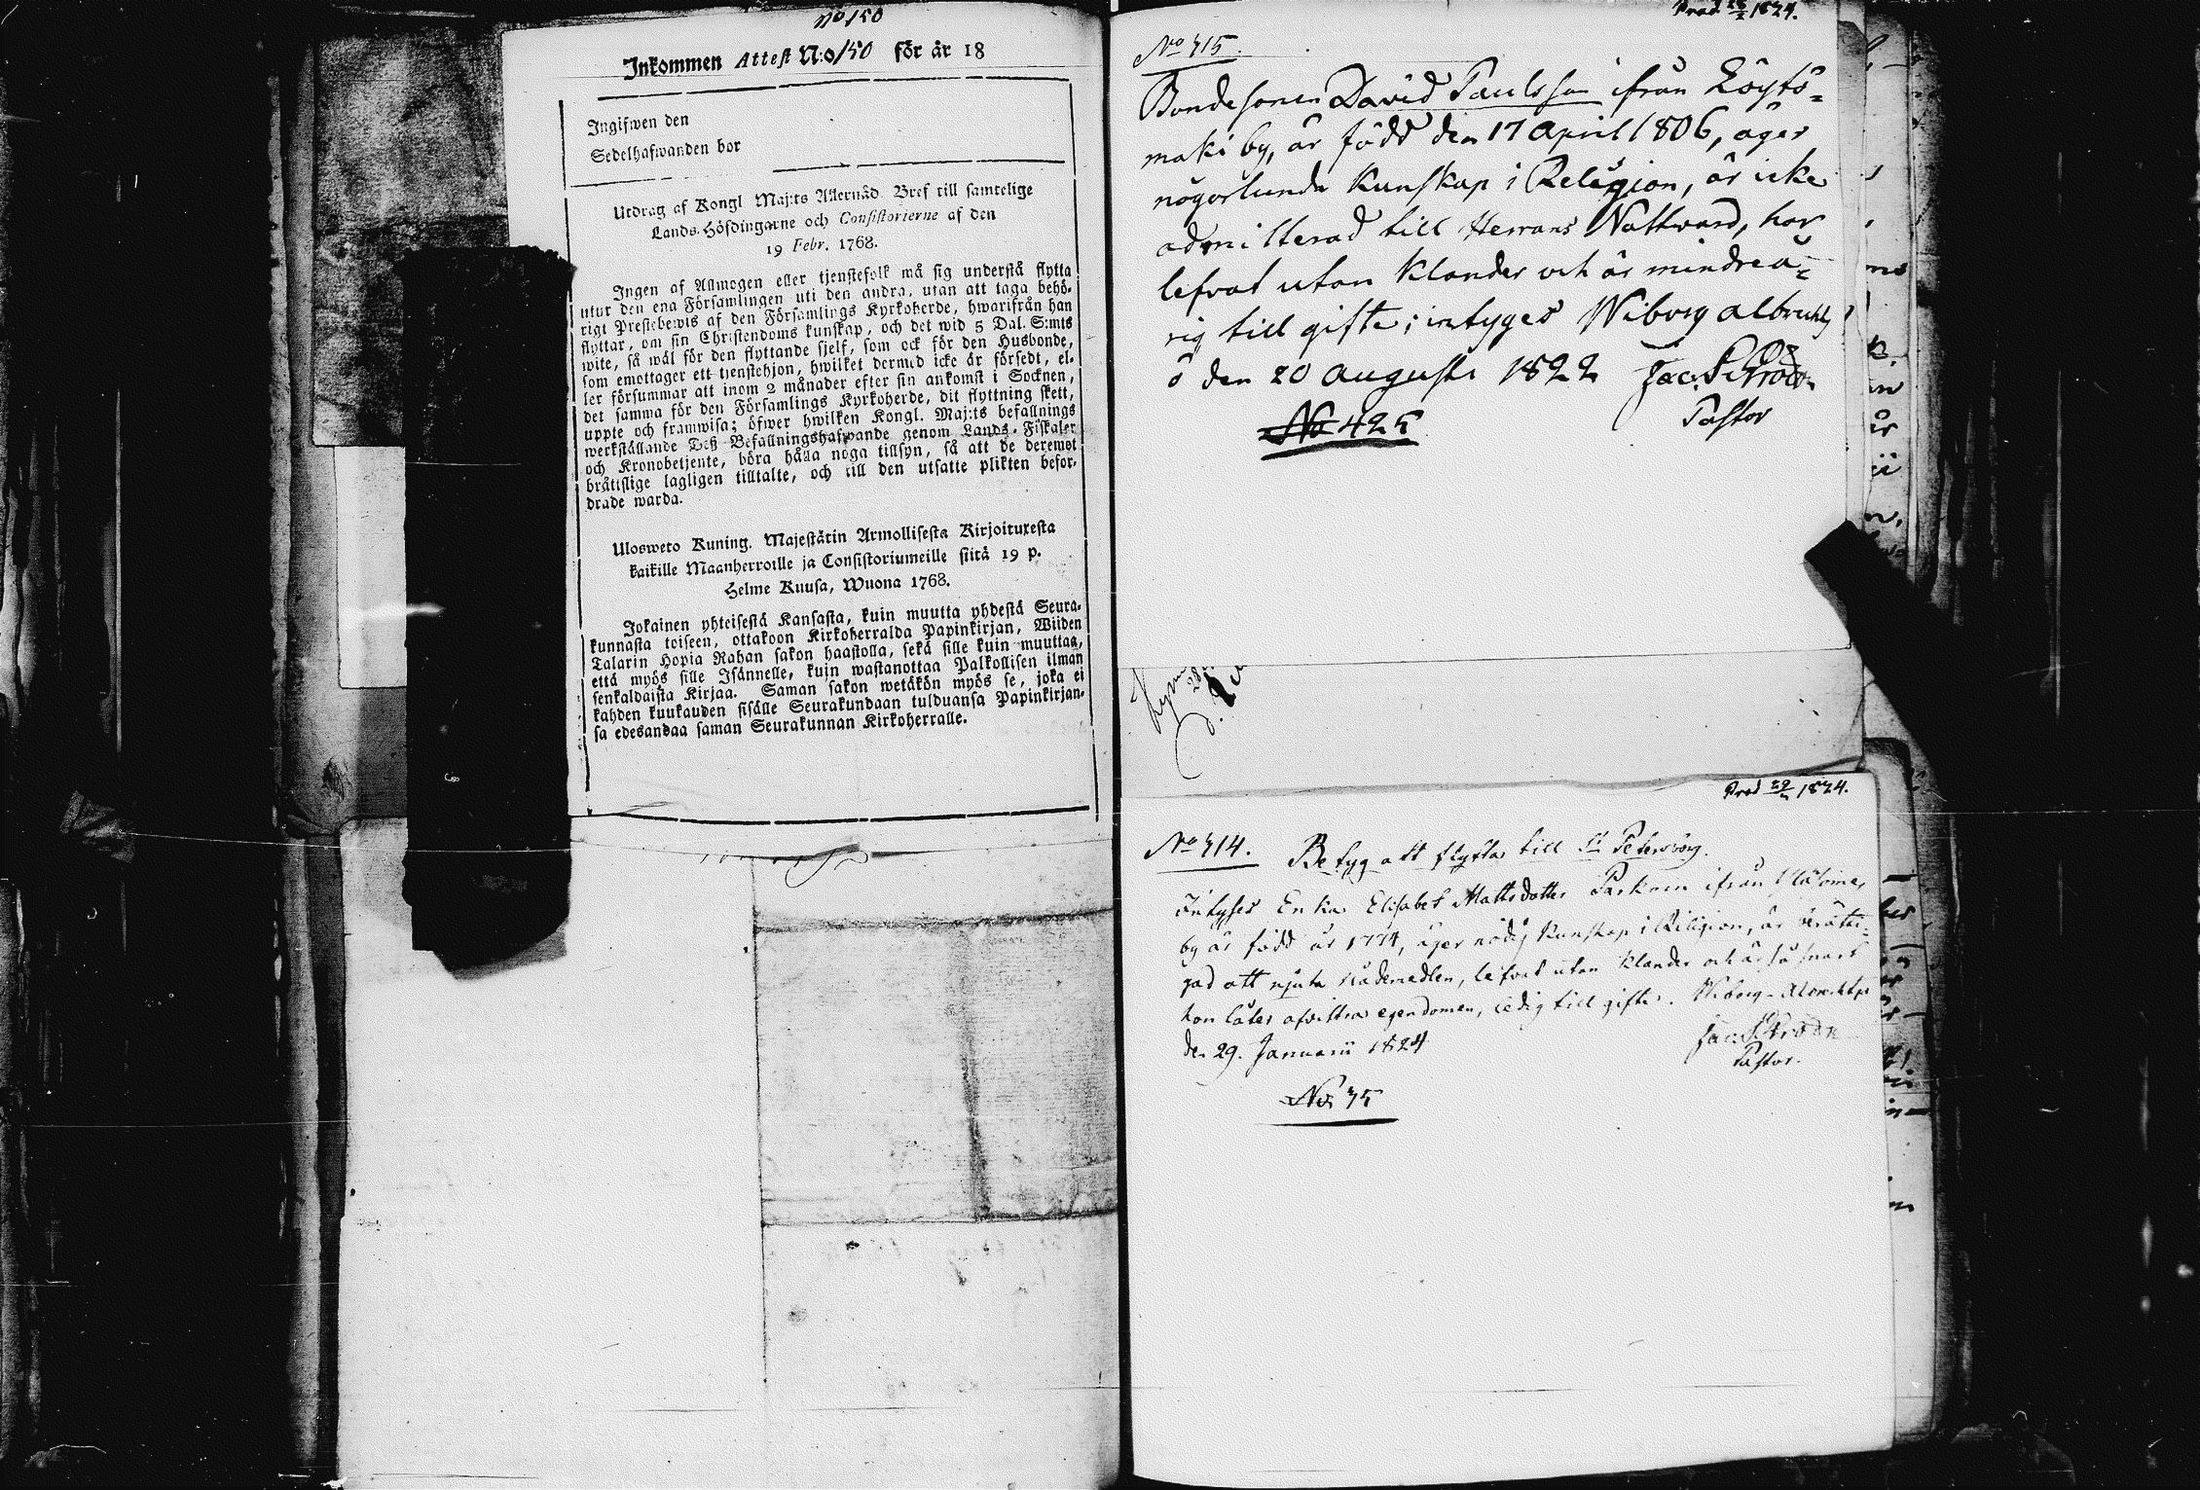 No 150
Inkommen Attest N:o 150 för år 18
Ingifwen den
Sedelhafwanden bor
Utdrag af Kongl Maj:ts Allernåd. Bref till samtelige
Lands-Höfdingarne och Consistorierne af den
19 Febr. 1768.
Ingen af Allmogen eller tjenstefolk må sig understå flytta
utur den ena Församlingen uti den andra, utan att taga behö-
rigt Prestebewis af den Församlings Kyrkoherde, hwarifrån han
flyttar, om sin Christendoms kunskap, och det wid 5 Dal. S:mts
wite, så wäl för den flyttande sjelf, som ock för den Husbonde,
som emottager ett tjenstehjon, hwilket dermed icke är försedt, el-
ler försummar att inom 2 månader efter sin ankomst i Socknen,
det samma för den Församlings Kyrkoherde, dit flyttning skett,
uppte och framwisa; öfwer hwilken Kongl. Maj:ts befallnings
werkställande Deß Befallningshafwande genom Lands-Fiskaler
och Kronobetjente, böra hålla noga tillsyn, så att de deremot
bråttslige lagligen tilltalte, och till den utsatte plikten befor-
drade warda.
Ulosweto Kuning. Majestätin Armollisesta Kirjoituxesta
kaikille Maanherroille ja Consistoriumeille siitä 19 p.
Helme Kuusa, Wuona 1768.
Jokainen yhteisestä Kansasta, kuin muutta yhdestä Seura-
kunnasta toiseen, ottakoon Kirkoherralda Papinkirjan, Wiiden
Talarin Hopia Rahan sakon haastolla, sekä sille kuin muuttaa,
että myös sille Isännelle, kuin wastanottaa Palkollisen ilman
senkaldaista Kirjaa. Saman sakon wetäkön myös se, joka ei
kahden kuukauden sisälle Seurakundaan tulduansa Papinkirjan-
sa edesandaa saman Seurakunnan Kirkoherralle.
Prod 28/2 1824.
No 415.
Bondesonen David Paulsson ifrån Löytö=
mäki by, är född den 17 April 1806, äger
någorlunda Kunskap i Religion, är icke
admitterad till Herrans Nattward, har
lefvat utan Klander och är mindreå=
rig till gifte; intyges Wiborg albrechts
ö den 20 Augusti 1822 Jac. Strödn
No 425 Pastor
Prod 29/2 1824.
No 414. Betyg att flytta till St Petersborg.
Intyges Enka Elisabet Mattsdotter Parkoin ifrån
by är född år 1774, äger nödig Kunskap i Religion, är berätti=
gad att njuta nådemedlen, lefvat utan Klander och är så snart
hon låter afvittra egendomen, ledig till gifte. Wiborg-
den 29. Januarii 1824 Jac. Strödn
Pastor.
No 35